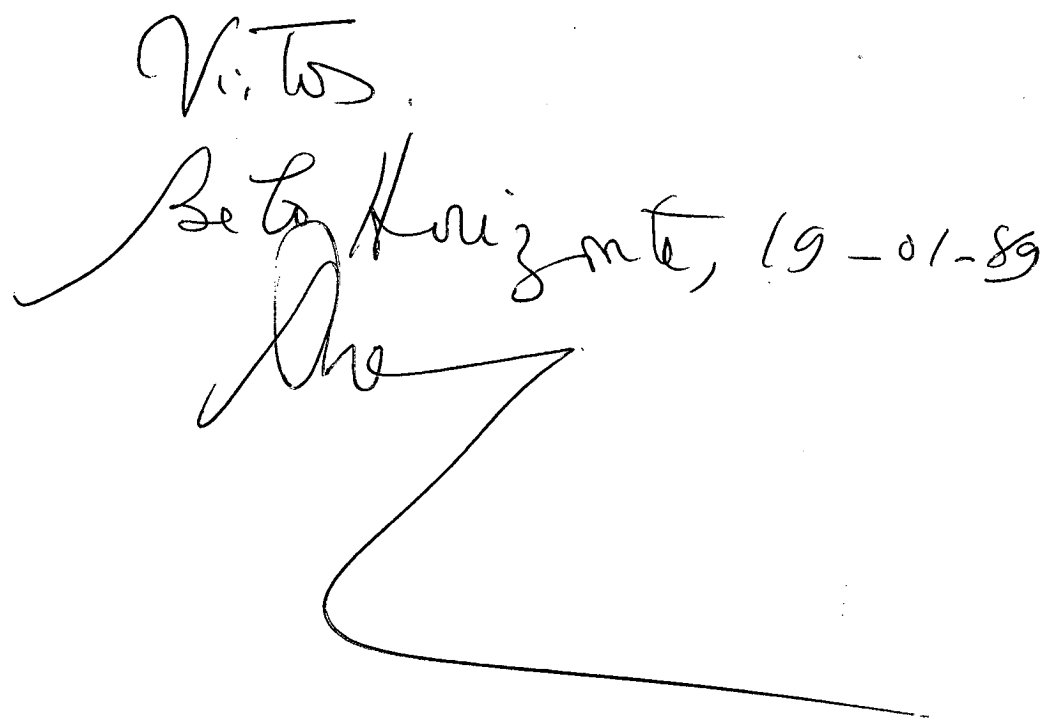 Vistos.
Belo Horizonte, 19-01-89